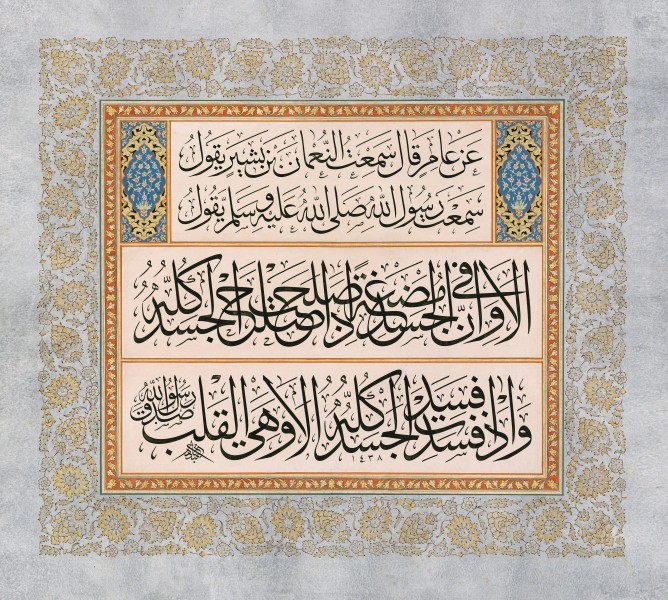 عن عامر قال سمعت النعمان بن بشير يقول
سمعت رسول الله صلى الله عليه وسلم يقول
ألا وإن في الجسد مضغة إذا صلحت صلح الجسد كله
وإذا فسدت فسد الجسد كله ألا وهي القلب
صدق رسول الله
١٤٣٨